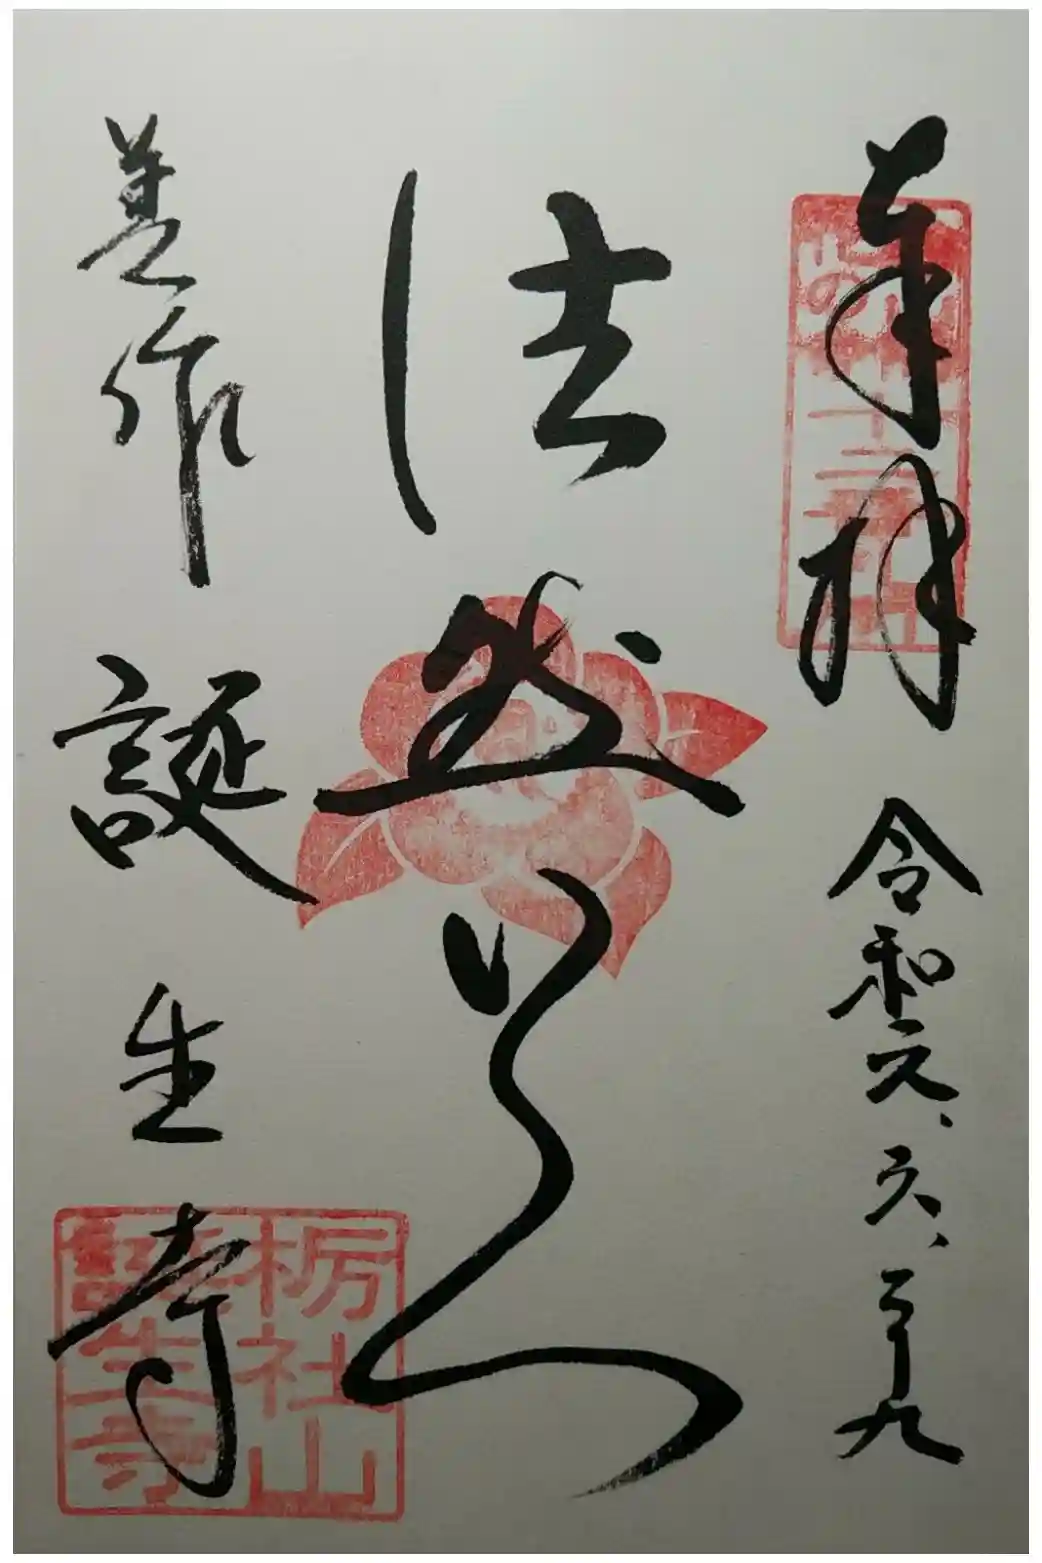 奉拝 令和元、六、二十九
法然上人
美作 誕生寺
栃社山
誕生寺